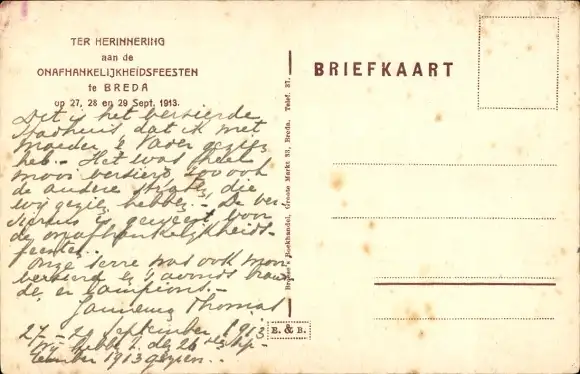 TER HERINNERING
aan de
ONAFHANKELIJKHEIDSFEESTEN
te BREDA
op 27, 28 en 29 Sept. 1913.
BRIEFKAART
Dit is het versierde
stadhuis dat ik met
moeder & Vader gezien
heb. - Het was heel
mooi versierd, zoo ook
de andere straten die
wij gezien hebben. - De ver-
siering is geweest voor
de onafhankelijkheids-
feesten..
Onze serre was ook mooi
versierd & 's avonds brand-
de, er lampions. -
27 - 29 September 1913
Wij hebben 't den 26 sten Sep-
tember 1913 gezien..
Boekhandel, Groote Markt 33, Breda. Telef. 37.
E. & B.